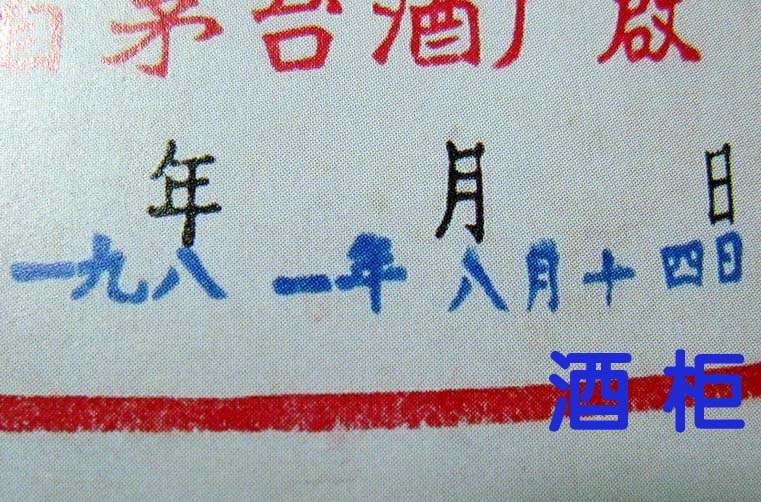 茅台酒厂啟
年 月 日
一九八一年八月十四日
酒柜